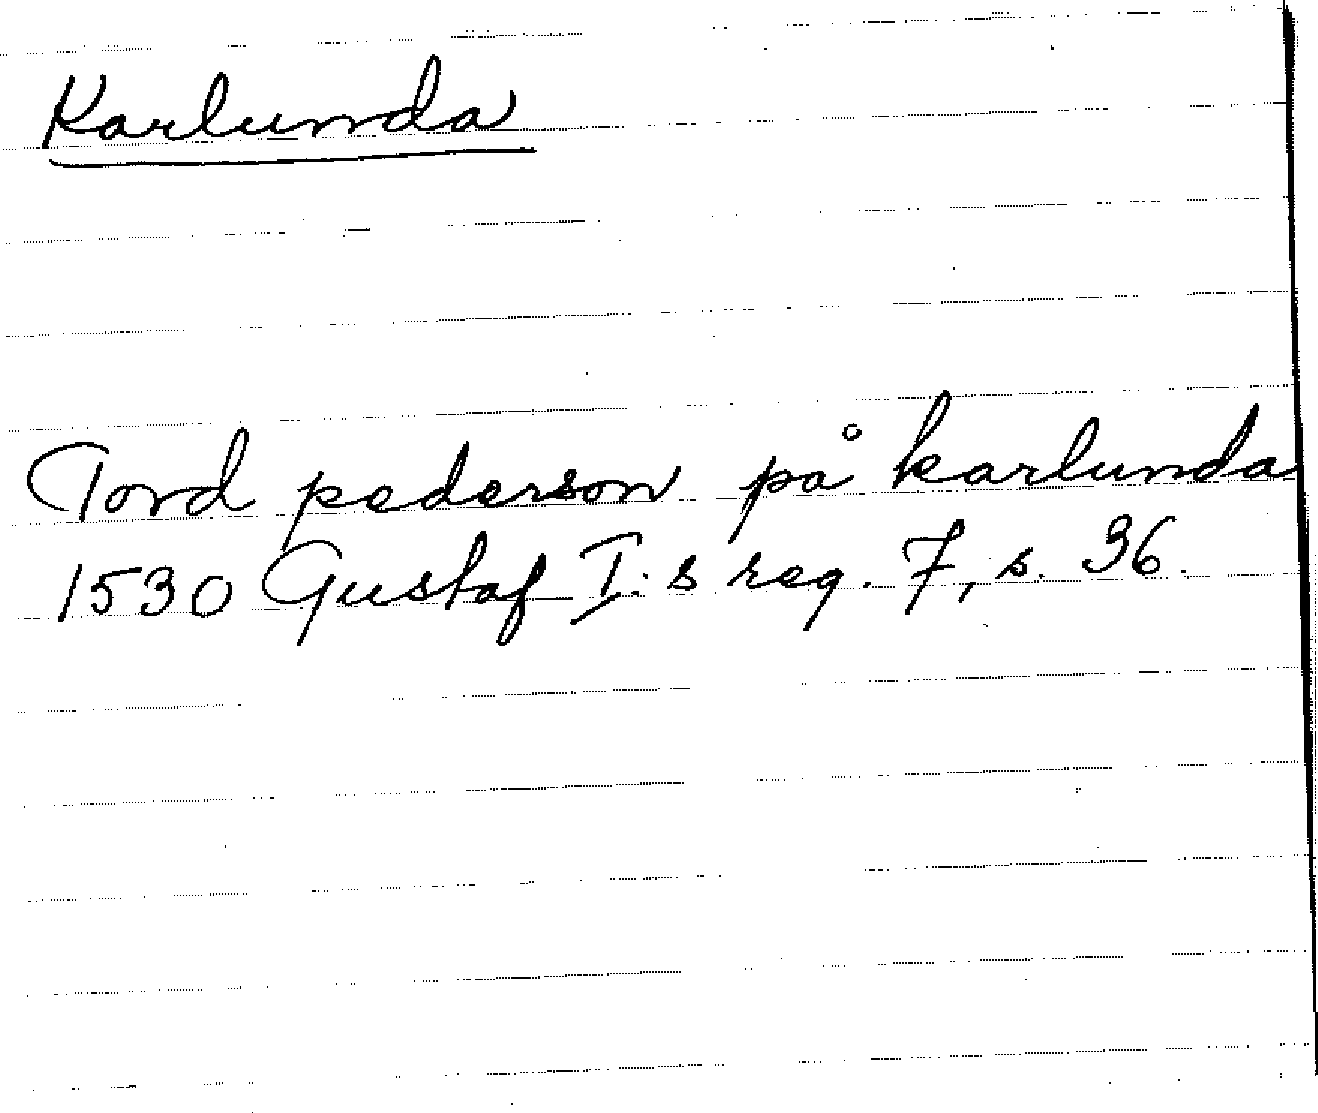 Karlunda
Tord pederson på karlunda
1530 Gustaf I:s reg. 7, s. 36.